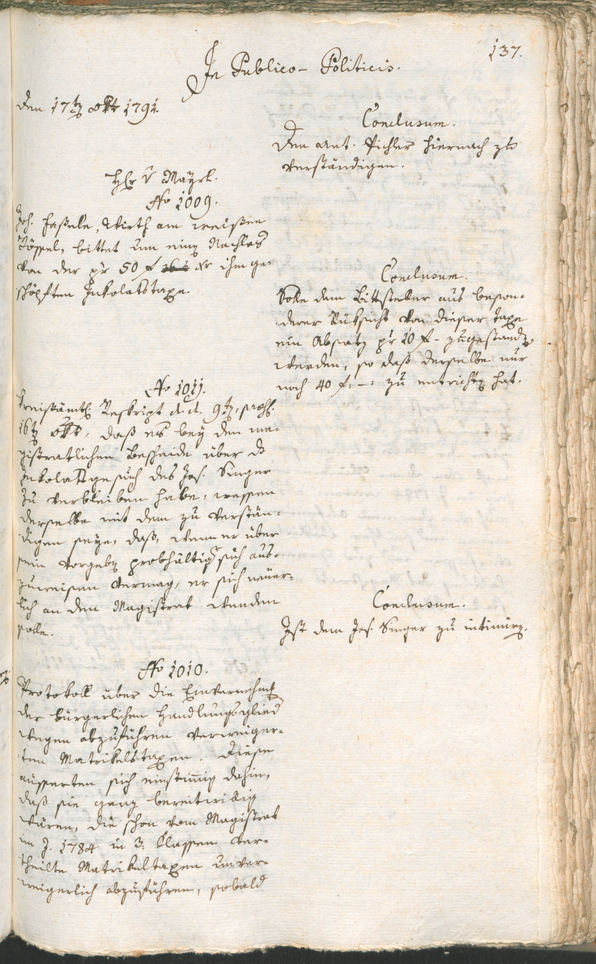 137.
In Publico-Politicis.
Den 17t 8br 1791.
Conclusum.
Den Ant. Pichler hiernach zu
verständigen.
H. v Mayrl.
No 1009.
Joh. Fasele, Wirth am weissen
Rössel, bittet um einen Nachlas
von der pr 50 f xr ihm ge-
schöpften Inkolatstaxe.
Conclusum.
Solle dem Bittsteller aus beson-
derer Rüksicht von dieser Taxe
ein Absatz pr 10 f - zugestanden
werden, so daß derselbe nur
noch 40 f -: zu entrichten hat.
No 1011.
Kreisämtl. Reskript d. d. 9t, praes.
16t 8br, daß es bey dem ma-
gistratlichen Bescheide über das
Inkolatsgesuch des Jos. Singer
zu verbleiben habe, wessen
derselbe mit dem zu verstän-
digen seye, daß, wenn er über
sein Vorgeben probhältig sich aus-
zuweisen vermag, er sich neuer-
lich an den Magistrat wenden
solle.
Conclusum.
Ist dem Jos. Singer zu intimiren.
No 1010.
Protokoll über die Einvernehmung
der bürgerlichen Handlungsglieder
wegen abzuführen verweiger-
ten Matrikelstaxen. Diese
äusserten sich einstimmig dahin,
daß sie ganz bereitwillig
wären, die schon vom Magistrat
im J. 1784 in 3 Classen ver-
theilte Matrikultaxen unver-
weigerlich abzuführen, sobald